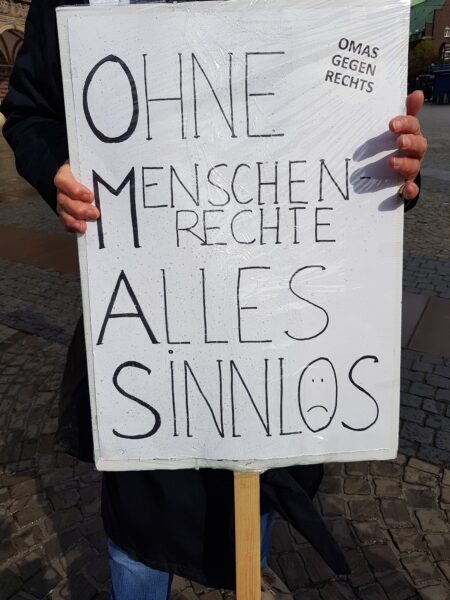 OMAS
GEGEN
RECHTS
OHNE
MENSCHEN-
RECHTE
ALLES
SINNLOS